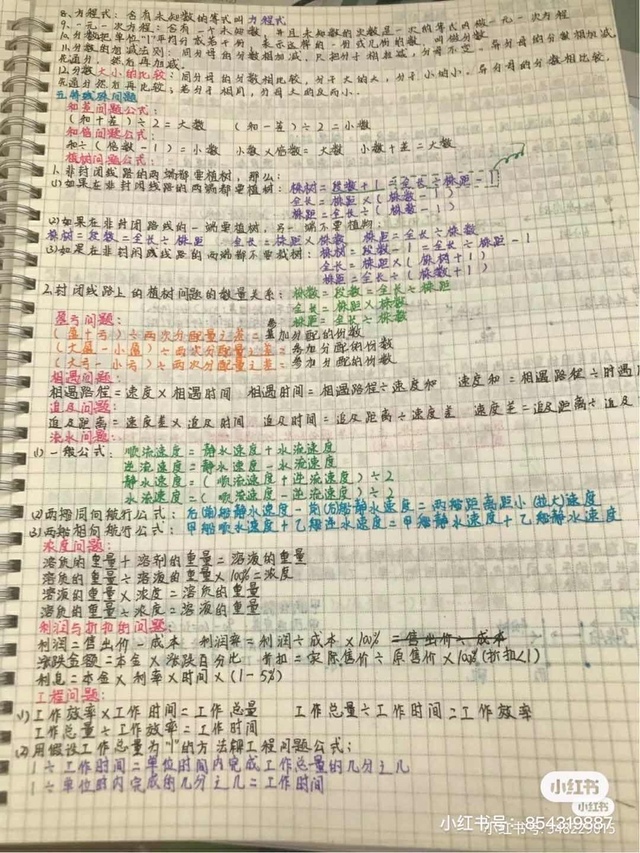 8.方程式:含有未知数的等式叫方程式
9.一元一次方程:含有一个未知数,并且未知数的次数是一次的等式叫做一元一次方程
10.分数把单位"1"平均分成若干份,表示这样的一份或几份的数,叫做分数
11.分数的加减法则:同分母的分数相加减,只把分子相加减,分母不变。异分母的分数相加减,
先通分,然后再加减
12.分数大小的比较:同分母的分数相比较,分子大的大,分子小的小。异分母的分数相比较,
先通分然后再比较;若分子相同,分母大的反而小.
五.特殊问题
和差问题公式:
(和+差)÷2=大数 (和-差)÷2=小数
和倍问题公式:
和÷(倍数-1)=小数 小数×倍数=大数 小数+差=大数
植树问题公式:
1.非封闭线路的两端都要植树,那么:
(1)如果在非封闭线路的两端都要植树: 株树=段数+1=全长÷株距-1
全长=株距×(株数-1)
株距=全长÷(株数-1)
(2)如果在非封闭路线的一端要植树,另一端不要植物:
株树=段数=全长÷株距 全长=株距×株数 株距=全长÷株数
(3)如是在非封闭线线路的两端都不要栽树: 株树=段数-1=全长÷株距-1
全长=株距×(株树+1)
株距=全长÷(株数+1)
2.封闭线路上的植树问题的数量关系: 株数=段数=全长÷株距
全长=株距×株数
株距=全长÷株数
盈亏问题:
(盈+亏)÷两次分配量之差=参加分配的份数
(大盈-小盈)÷两次分配量之差=参加分配的份数
(大亏-小亏)÷两次分配量之差=参加分配的份数
相遇问题:
相遇路程=速度×相遇时间 相遇时间=相遇路程÷速度和 速度和=相遇路程÷时遇
追及问题:
追及距离=速度差×追及时间 追及时间=追及距离÷速度差 速度差=追及距离÷追及
流水问题:
(1)一般公式: 顺流速度=静水速度+水流速度
逆流速度=静水速度-水流速度
静水速度=(顺流速度+逆流速度)÷2
水流速度=(顺流速度-逆流速度)÷2
(2)两船同向航行公式:后(前)船静水速度-前(后)船静水速度=两船距离距小(拉大)速度
(3)两船相向航行公式:甲船顺水速度+乙船逆水速度=甲船静水速度+乙船静水速度
浓度问题:
溶质的重量+溶剂的重量=溶液的重量
溶质的重量÷溶液的重量×100%=浓度
溶液的重量×浓度=溶质的重量
溶质的重量÷浓度=溶液的重量
利润与折扣的问题:
利润=售出价-成本 利润率=利润÷成本×100% =售出价÷成本
涨跌金额=本金×涨跌百分比 折扣=实际售价÷原售价×100%(折扣<1)
利息=本金×利率×时间×(1-5%)
工程问题:
(1)工作效率×工作时间=工作总量 工作总量÷工作时间=工作效率
工作总量÷工作效率=工作时间
(2)用假设工作总量为"1"的方法解工程问题公式:
1÷工作时间=单位时间内完成工作总量的几分之几
1÷单位时内完成的几分之几=工作时间
小红书
小红书
小红书号:854319887
小红书号: